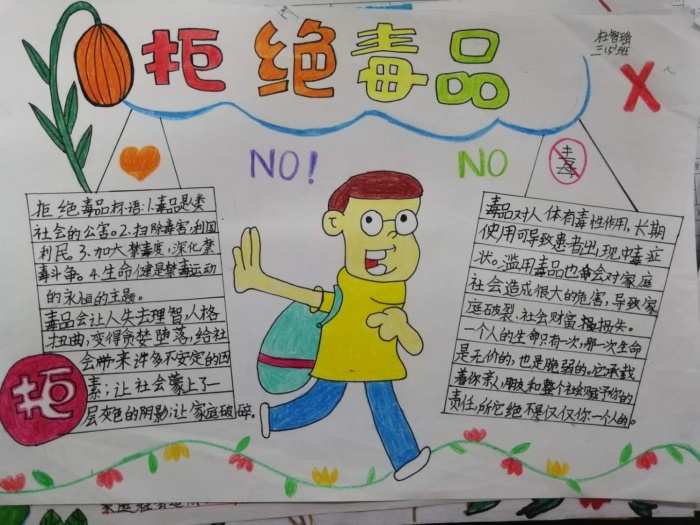 拒绝毒品
三(5)班
X
NO!
NO
毒
拒绝毒品标语:1.毒品是人类
社会的公害。2.扫除毒害,利国
利民。3.加大禁毒度,深化禁
毒斗争。4.生命健是禁毒运动
的永恒的主题。
毒品会让人失去理智,人格
扭曲,变得贪婪堕落,给社
会带来许多不安定的因
素;让社会蒙上了一
层灰色的阴影;让家庭破碎。
拒
毒品对人体有毒性作用,长期
使用可导致患者出,现中毒症
状。滥用毒品也会对家庭
社会造成很大的危害,导致家
庭破裂.社会财富损失。
一个人的生命只有一次,那一次生命
是无价的,也是脆弱的,它承载
着你亲人,朋友和整个社会赋予你的
责任,所它绝不是仅仅你一个人的。